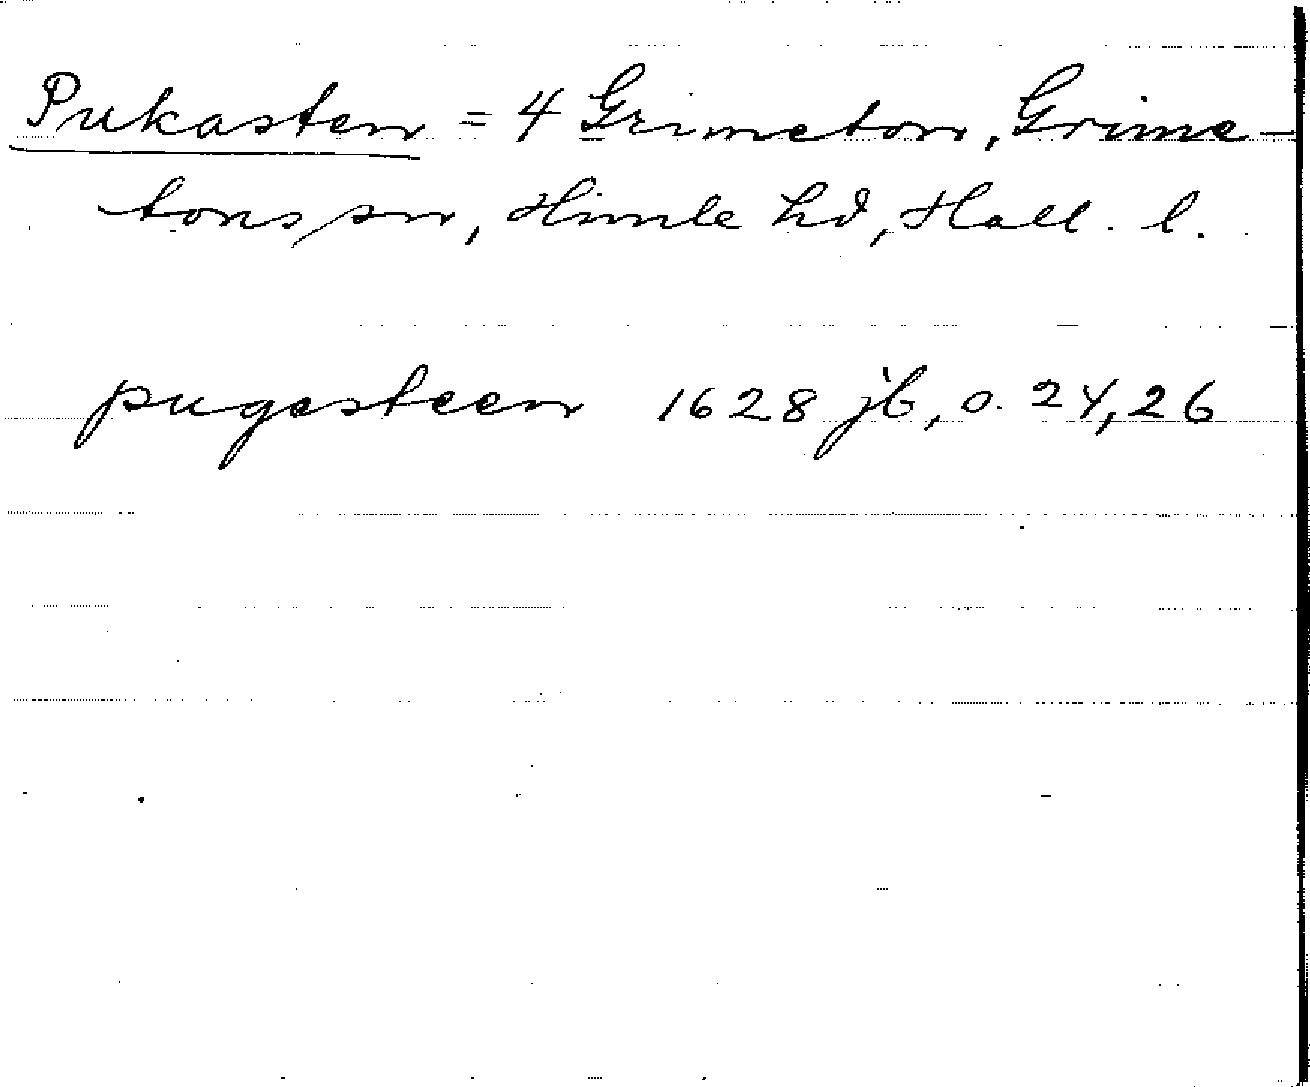 Pukasten = 4 Grimeton, Grime-
tons sn, Himle hd, Hall. l.
pugesteen 1628 jb, o. 24, 26